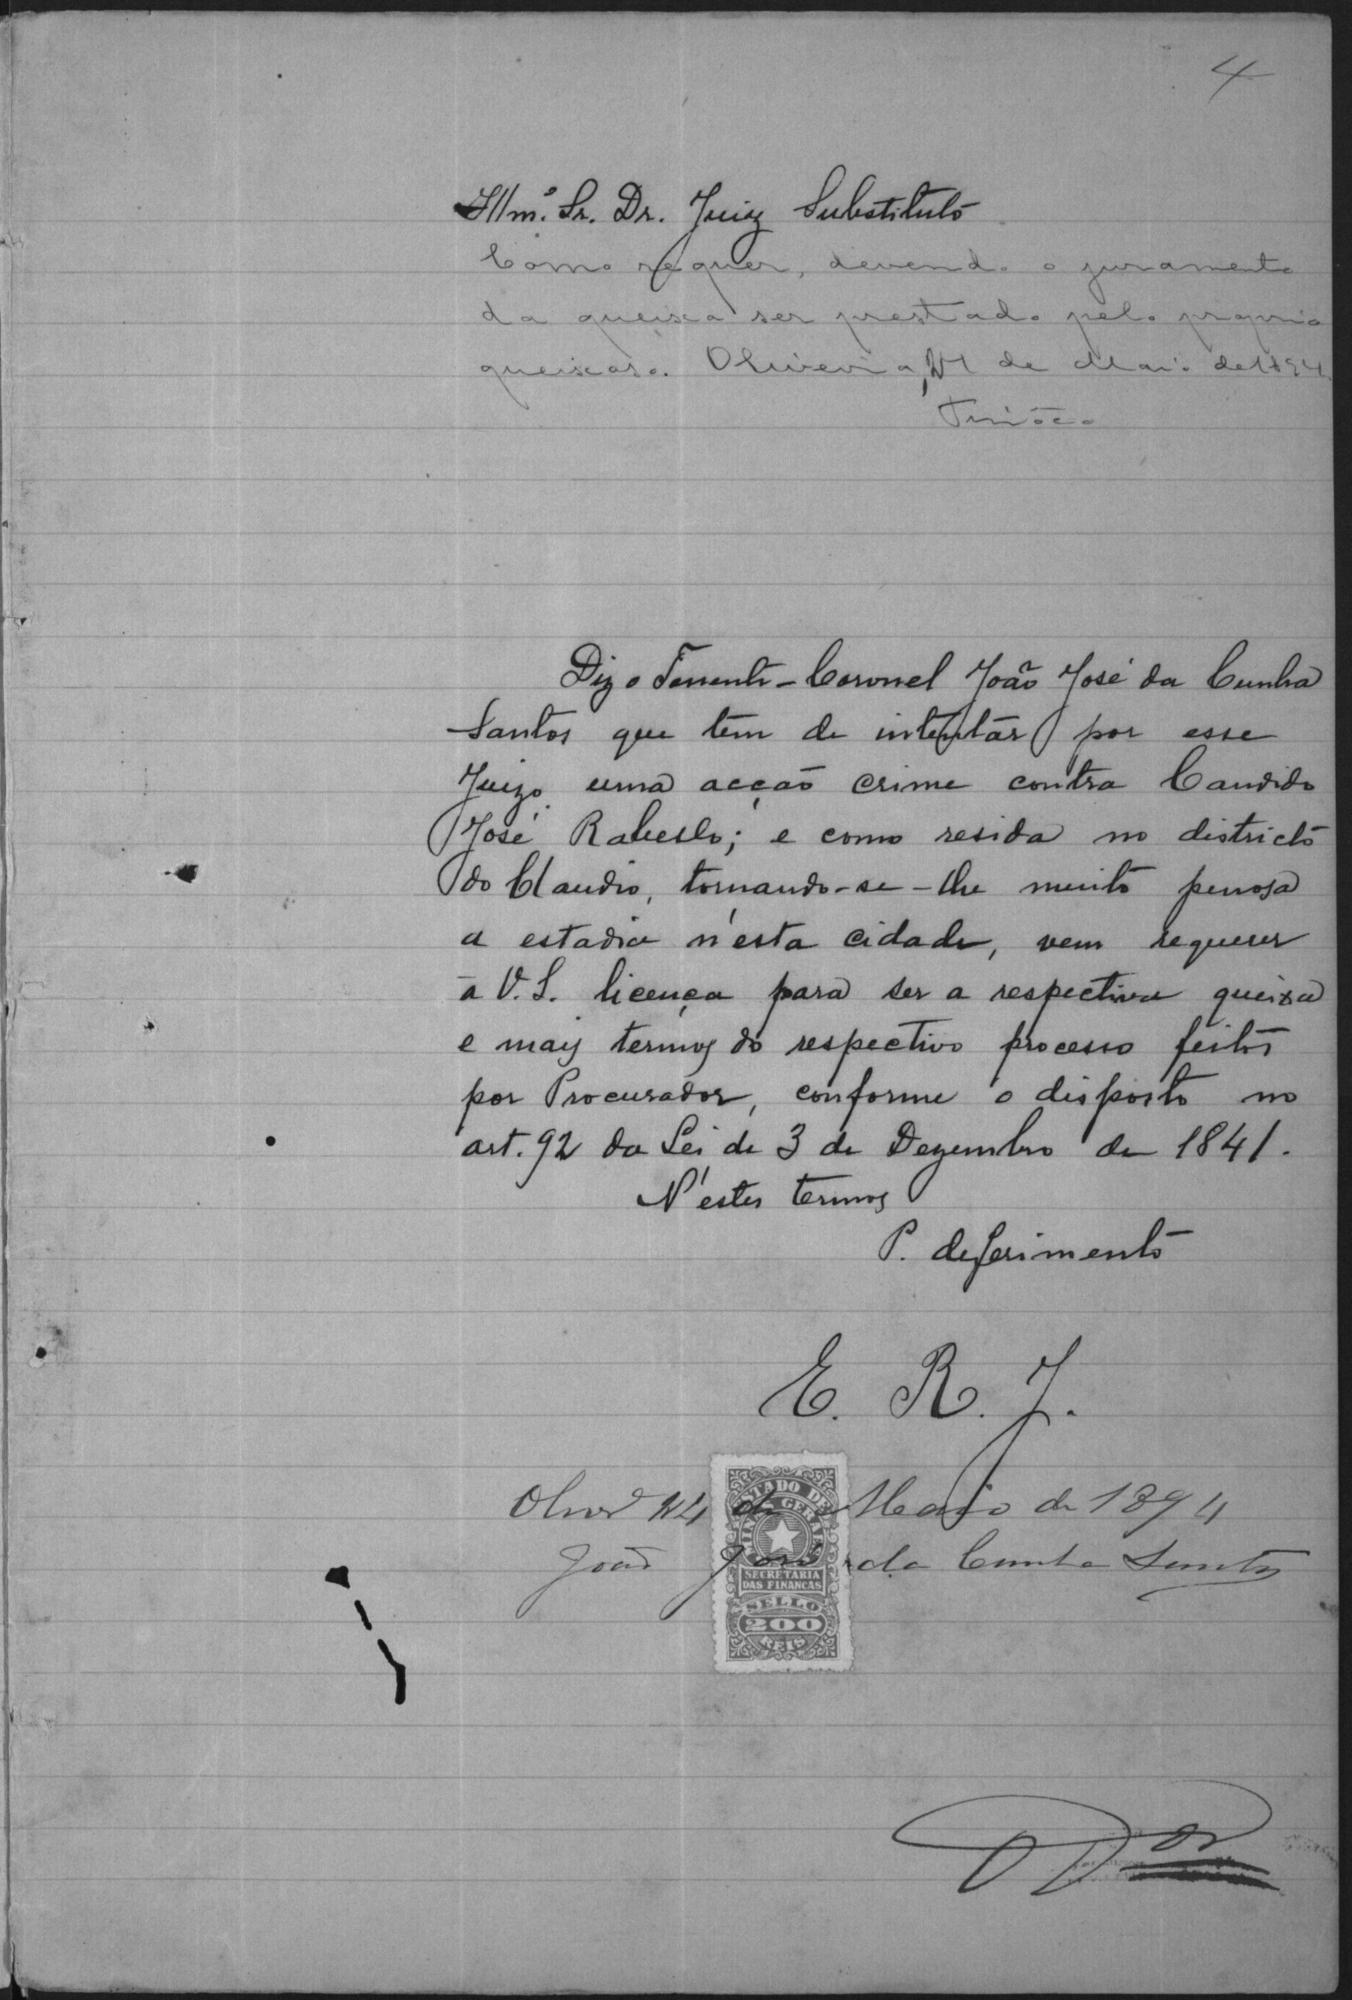 4
Illmº. Sr. Dr. Juiz Substituto
Como requer, devendo o juramento
da queixa ser prestado pelo proprio
queixoso. Oliveira, 24 de Maio de 1894.
Dizo Tenente-Coronel João José da Cunha
Santos que tem de intentar por esse
Juizo uma acção crime contra Candido
José Rabello; e como resida no districto
do Claudio, tornando-se-lhe muito penosa
a estadia n'esta cidade, vem requerer
a V. S. licença para ser a respectiva queixa
e mais termos do respectivo processo feitos
por Procurador, conforme o disposto no
art. 92 da Lei de 3 de Dezembro de 1841.
N'estes termos
P. deferimento
E. R. J.
Olivrª 24 de Maio de 1894
João José da Cunha Santos
ESTADO DE
MINAS GERAES
SECRETARIA
DAS FINANÇAS
SELLO
200
REIS